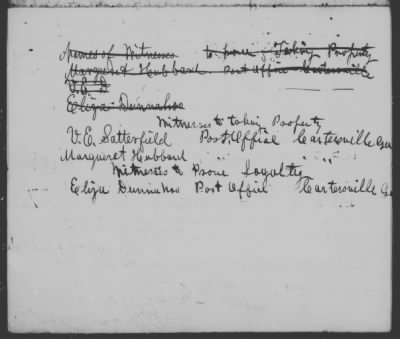 Names of Witnesses to prove Taking Property
Margaret Hubbard Post Office Cartersville
V. E. S
Eliza Dunnahoo
Witnesses to taking Property
V. E. Satterfield Post Office Cartersville Geo
Margaret Hubbard " " "
Witnesses to Prove Loyalty
Eliza Dunnahoo Post Office Cartersville Geo